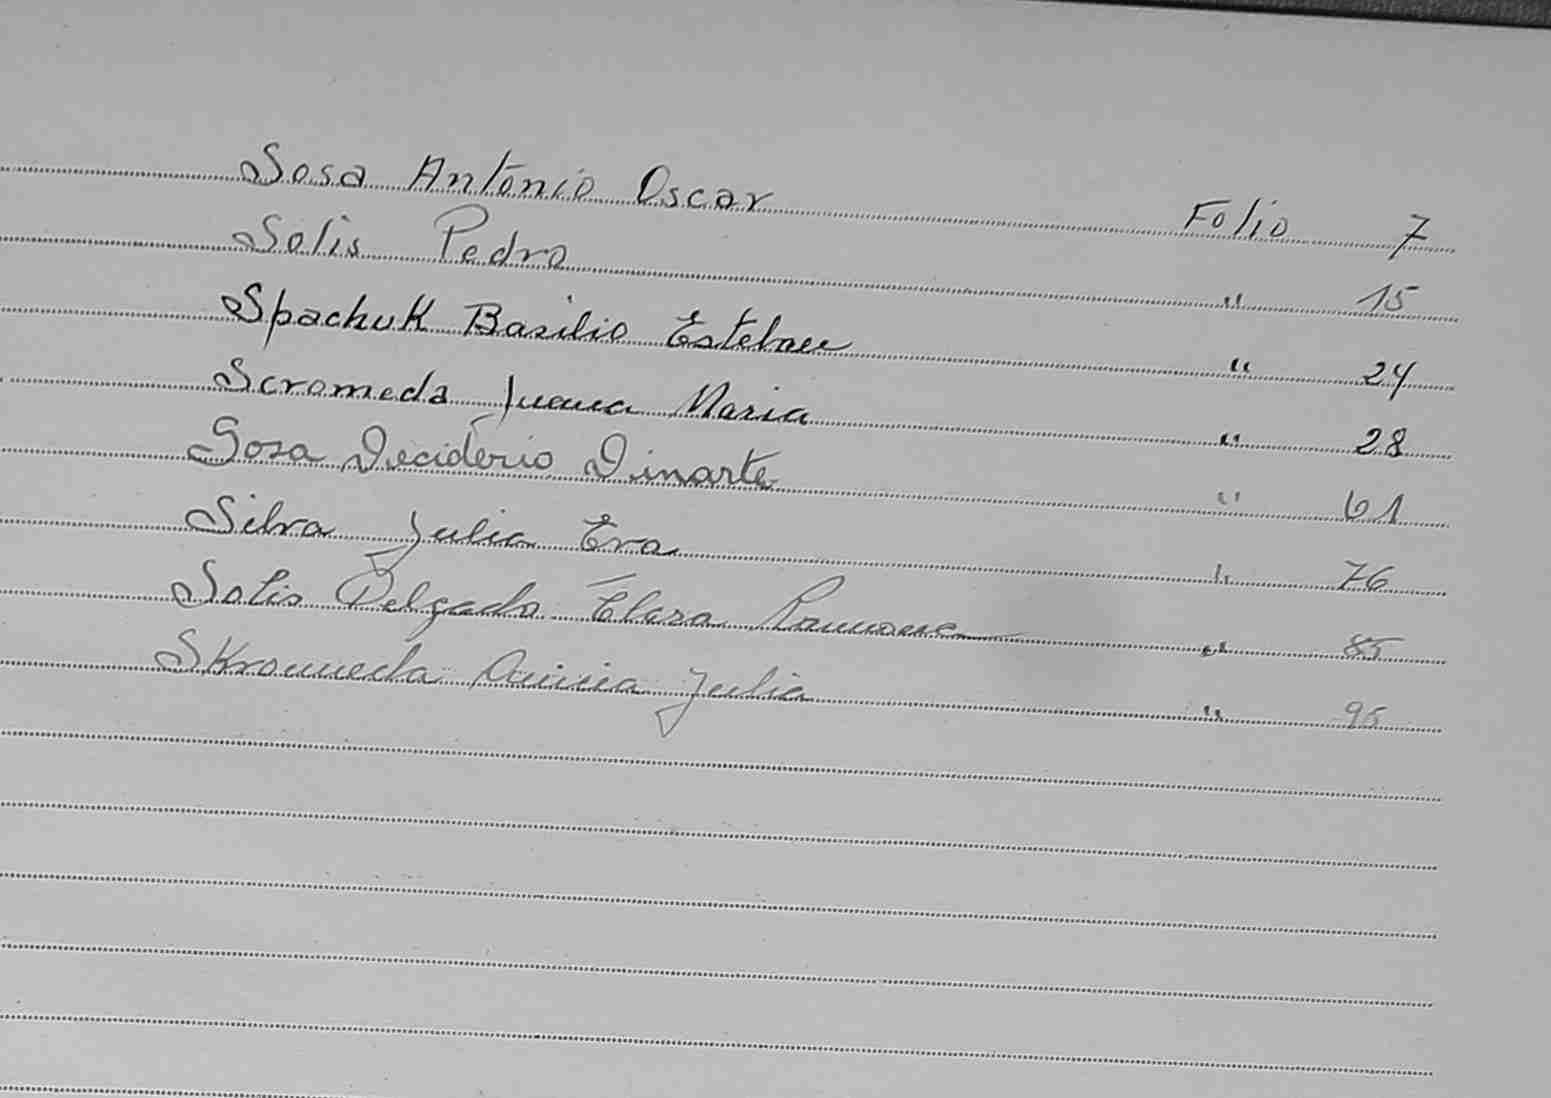 Sosa Antonio Oscar Folio 7
Solis Pedro " 15
Spachuk Basilio Esteban " 24
Scromeda Juana Maria " 28
Sosa Deciderio Dinarte " 61
Silva Julia Eva " 76
Solis Delgado Elena Ramona " 85
Skromeda Julia " 95